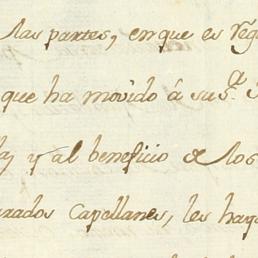 las partes, en que es reg
que ha movido á su s.ª
y al beneficio de los
rados Capellanes, les hay